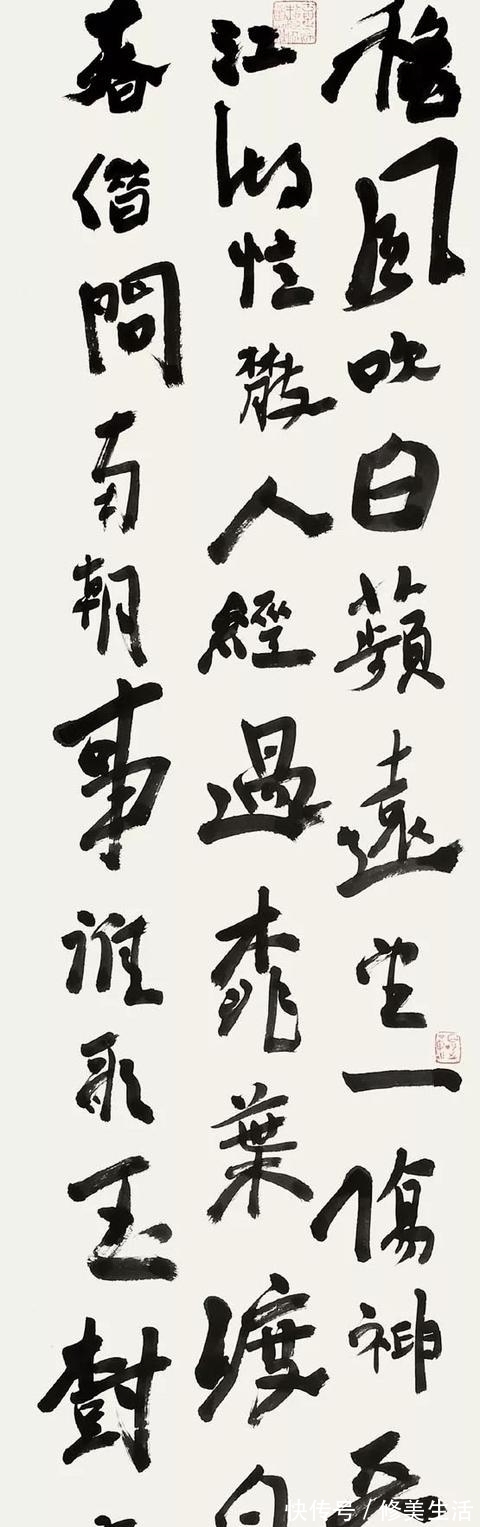 秋風吹白蘋遠望一傷神
江湖恠散人經過桃葉渡
春借問南朝事誰歌玉樹
快传号/修美生活